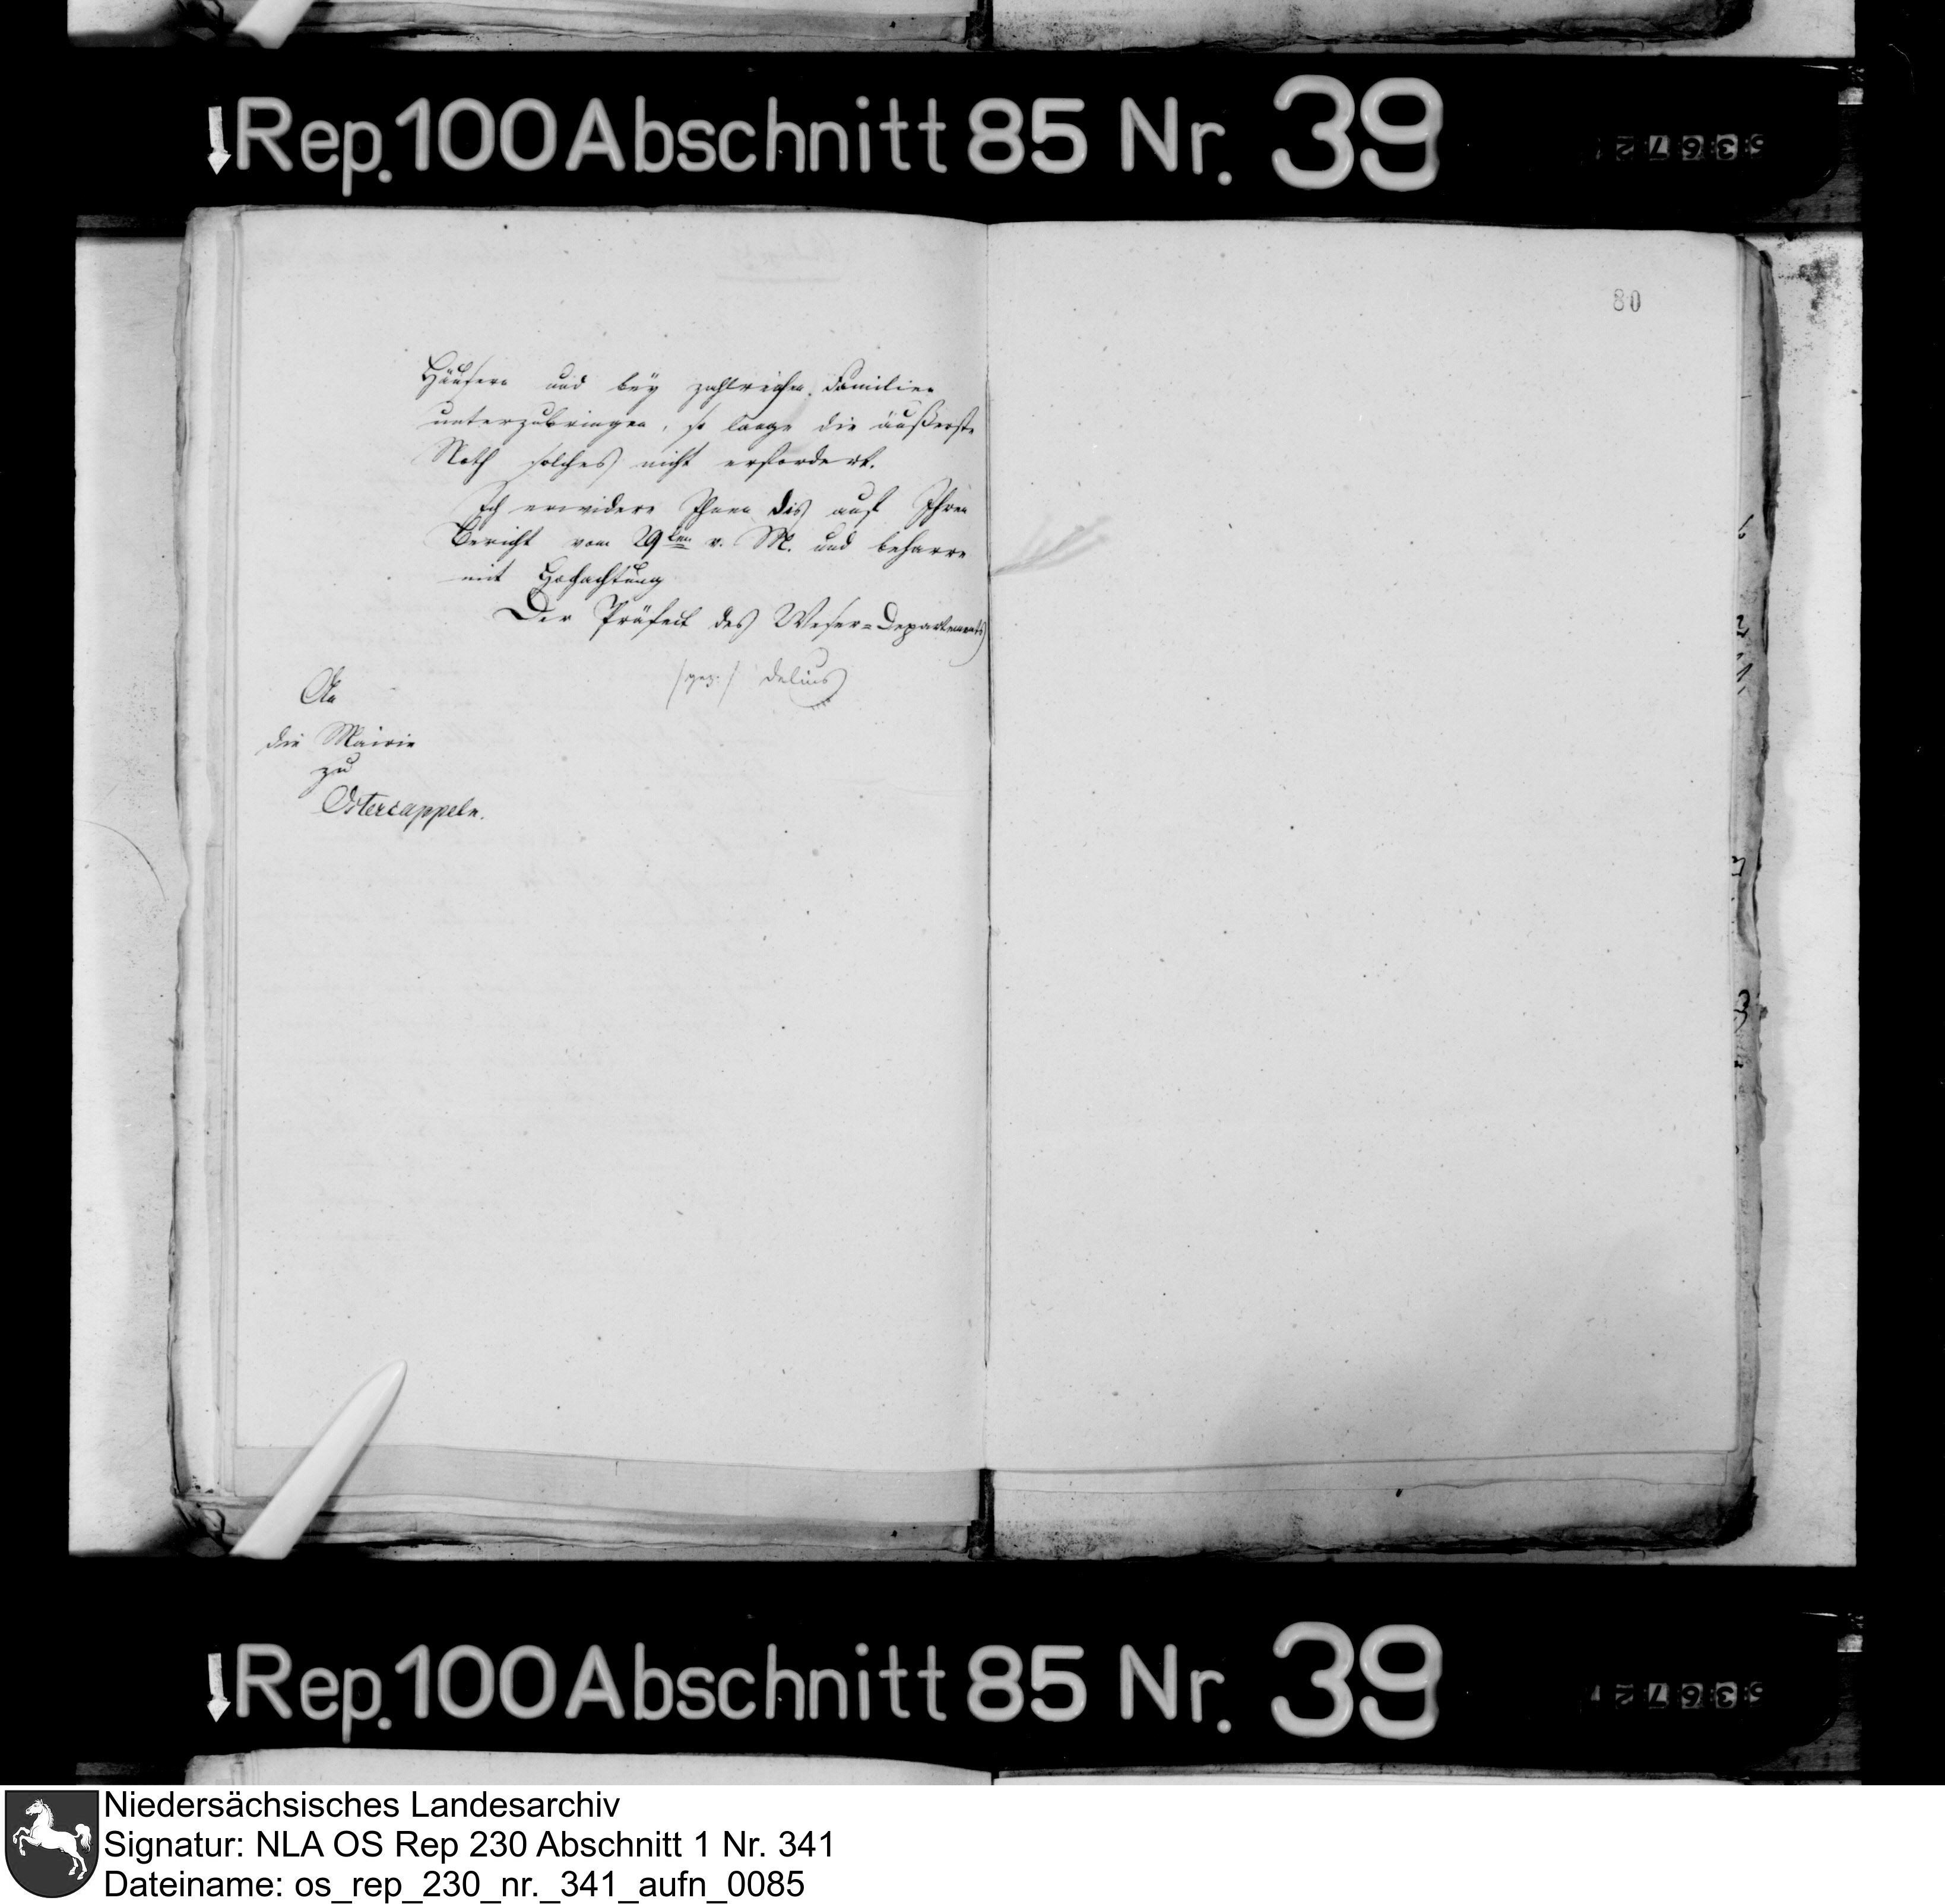 Rep. 100 Abschnitt 85 Nr. 39
80
Häusern und bey zahlreichen Familien
unterzubringen, so lange die äußerste
Noth solches nicht erfordert.
Ich erwidere Ihnen dis auf Ihren
Bericht vom 29ten v. M. und beharre
mit Hochachtung
Der Präfect des Weser=Departements
/gez./ Delius
An
die Mairie
zu
Ostercappeln.
Rep. 100 Abschnitt 85 Nr. 39
Niedersächsisches Landesarchiv
Signatur: NLA OS Rep 230 Abschnitt 1 Nr. 341
Dateiname: os_rep_230_nr._341_aufn_0085